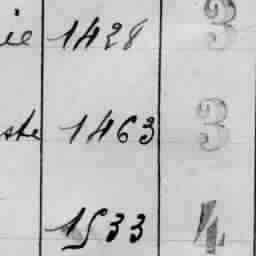 ie 1428 3
ste 1463 3
1533 4